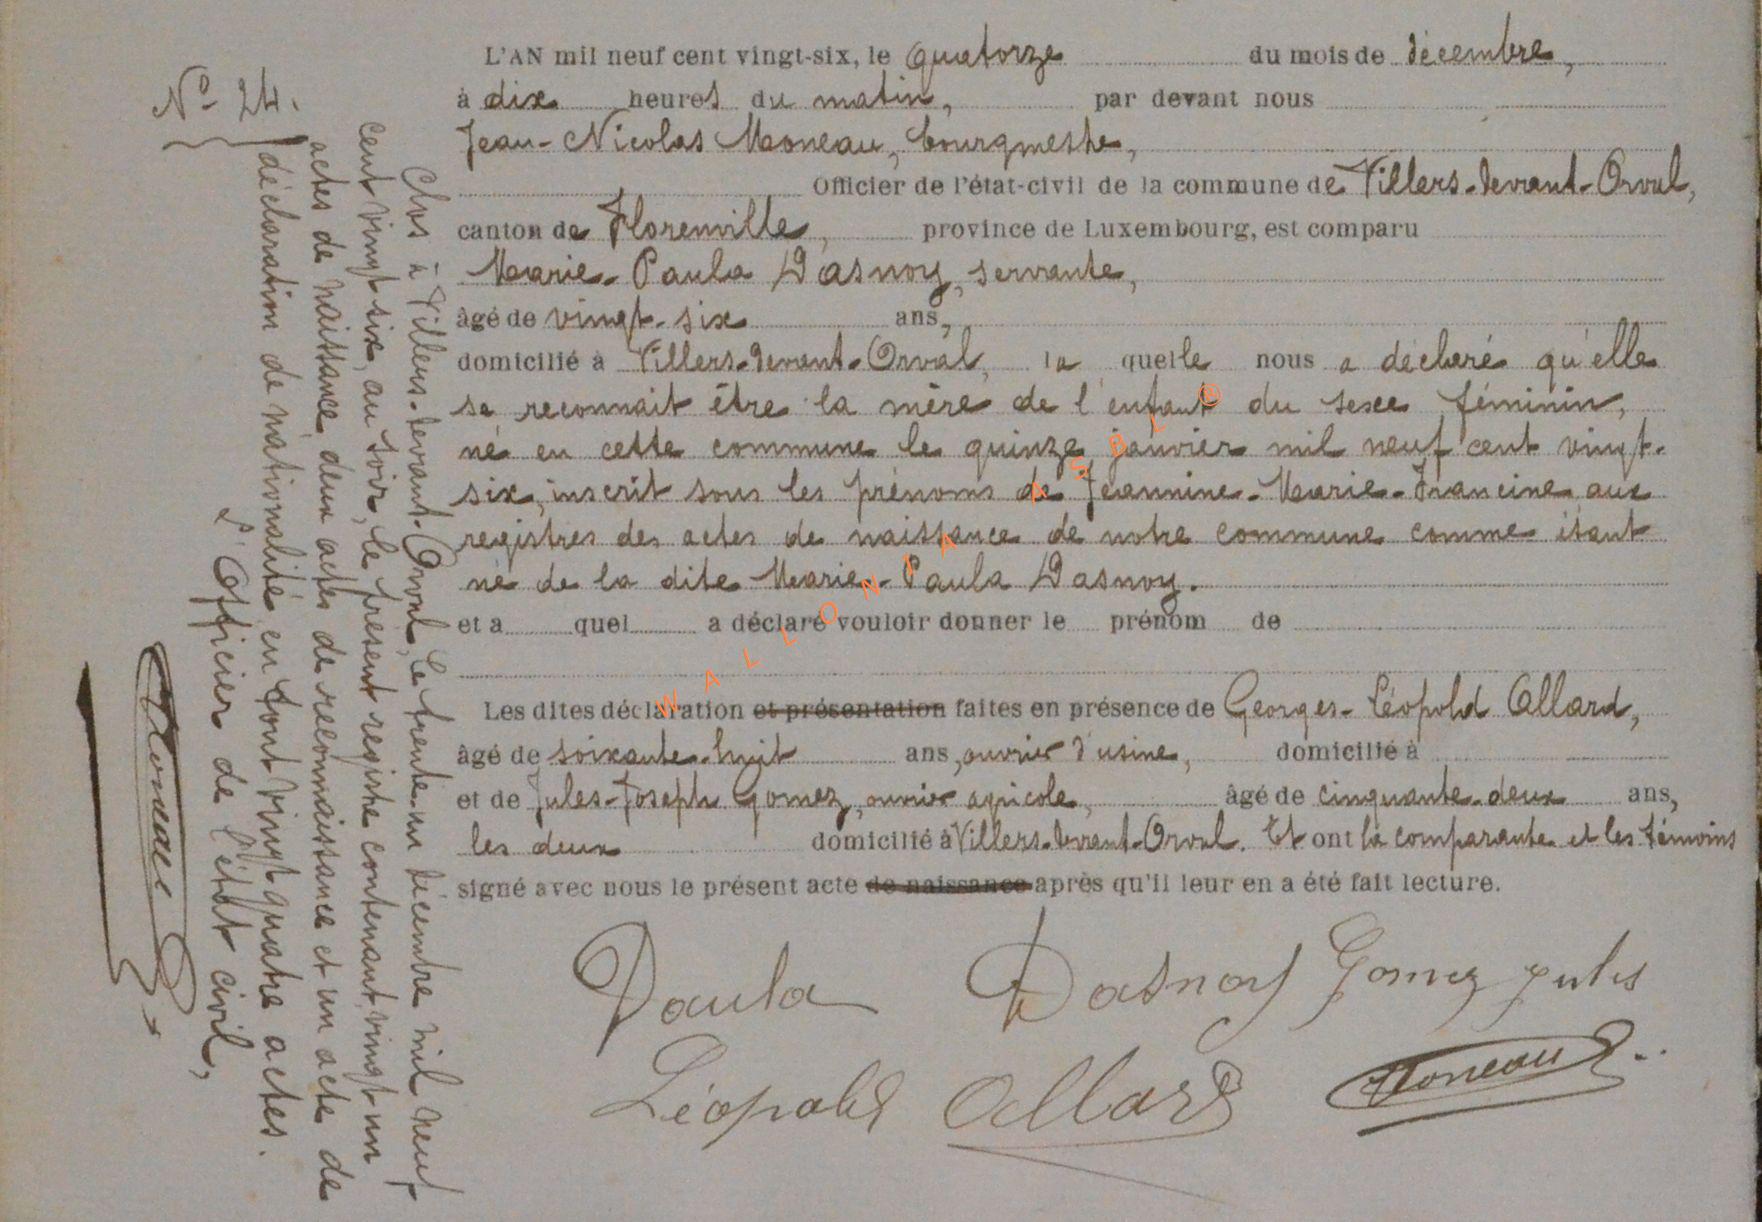 N° 24.
L'AN mil neuf cent vingt-six, le quatorze du mois de décembre,
à dix heures du matin, par devant nous
Jean-Nicolas Moneau, bourgmestre,
Officier de l'état-civil de la commune de Villers-devant-Orval,
canton de Florenville, province de Luxembourg, est comparu
Marie-Paula Dasnoy, servante,
âgé de vingt-six ans,
domicilié à Villers-devant-Orval, la quelle nous a déclaré qu'elle
se reconnait être la mère de l'enfant du sexe féminin,
né en cette commune le quinze janvier mil neuf cent vingt-
six, inscrit sous les prénoms de Jeannine-Marie-Francine aux
registres des actes de naissance de notre commune comme étant
né de la dite Marie-Paula Dasnoy.
et a quel a déclaré vouloir donner le prénom de
Les dites déclaration et présentation faites en présence de Georges-Léopold Allard,
âgé de soixante-huit ans, ouvrier d'usine, domicilié à
et de Jules-Joseph Gomez, ouvrier agricole, âgé de cinquante-deux ans,
les deux domicilié à Villers-devant-Orval. Et ont la comparante et les témoins
signé avec nous le présent acte de naissance après qu'il leur en a été fait lecture.
Paula Dasnoy Gomez Jules
Léopold Allard Moneau
Clos à Villers-devant-Orval, le trente-un décembre mil neuf
cent vingt six, au soir, le présent registre contenant vingt un
actes de naissance, deux actes de reconnaissance et un acte de
déclaration de nationalité, en tout vingt quatre actes.
L'Officier de l'état civil,
Moneau
WALLONIA ASBL ©